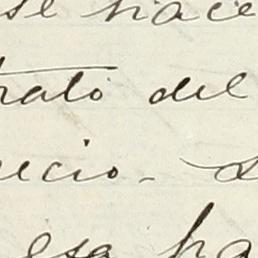 se hace
trato del
ecio.
esa ha